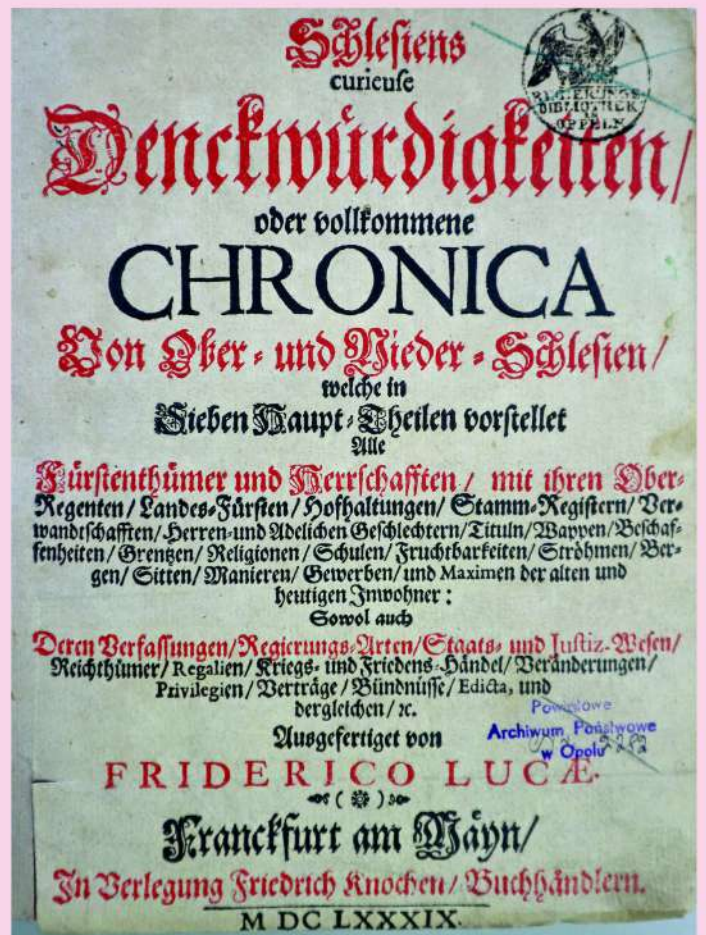 Schlesiens
curieuse
Denckwürdigkeiten/
oder vollkommene
CHRONICA
Von Ober- und Nieder-Schlesien/
welche in
Sieben Haupt-Theilen vorstellet
Alle
Fürstenthümer und Herrschafften / mit ihren Ober-
Regenten/Landes-Fürsten/Hofhaltungen/Stamm-Registern/Ver-
wandtschafften/Herren-und Adelichen Geschlechtern/Tituln/Wappen/Beschaf-
fenheiten/Grentzen/Religionen/Schulen/Fruchtbarkeiten/Ströhmen/Ber-
gen/Sitten/Manieren/Gewerben/und Maximen der alten und
heutigen Inwohner:
Sowol auch
Deren Verfassungen/Regierungs-Arten/Staats- und Justiz-Wesen/
Reichthümer/Regalien/Kriegs- und Friedens-Händel/Veränderungen/
Privilegien/Verträge/Bündnüsse/Edicta, und
dergleichen/ ꝛc.
Ausgefertiget von
FRIDERICO LUCÆ.
Franckfurt am Mäyn/
In Verlegung Friedrich Knochen/Buchhändlern.
M DC LXXXIX.
REGIERUNGS
BIBLIOTHEK
IN
OPPELN
Powiatowe
Archiwum Państwowe
w Opolu